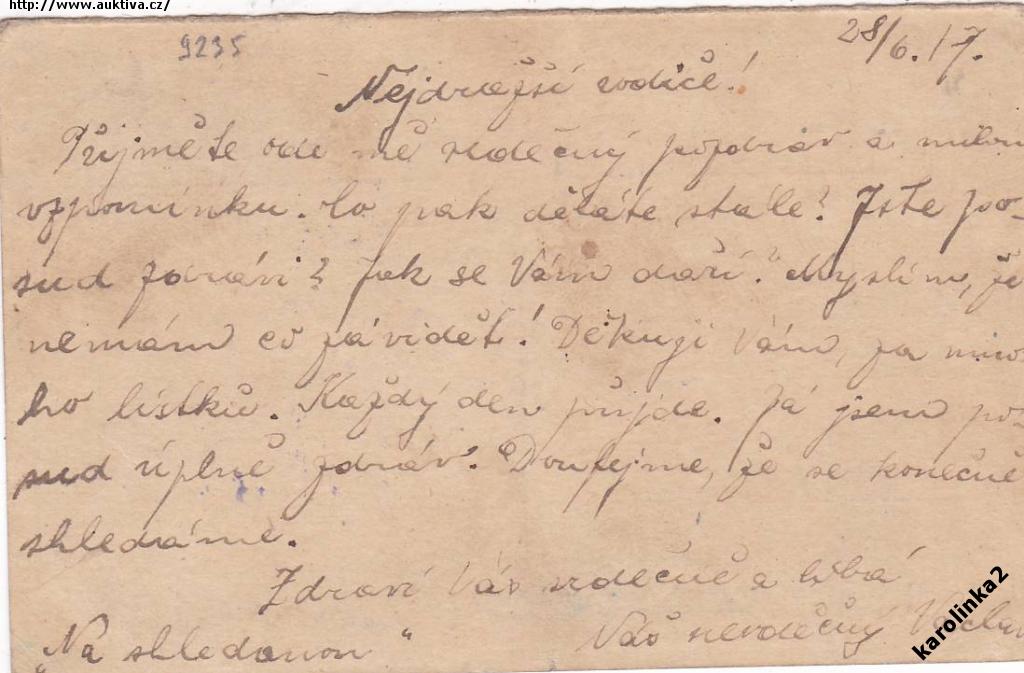 http://www.auktiva.cz/
9235
28/6.17.
Nejdražší rodiče!
Přijměte ode mě srdečný pozdrav a milou
vzpomínku. Co pak děláte stále? Jste po-
sud zdrávi? Jak se Vám daří? Myslím, že
nemám co závidět! Děkuji Vám, za mno-
ho lístků. Každý den přijde. Já jsem po-
sud úplně zdráv. Doufejme, že se konečně
shledáme.
Zdraví Vás srdečně a líbá
Váš nevděčný
„Na shledanou"
karolinka2